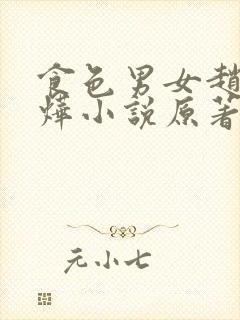 食色男女趙
燁小說原著
元小七